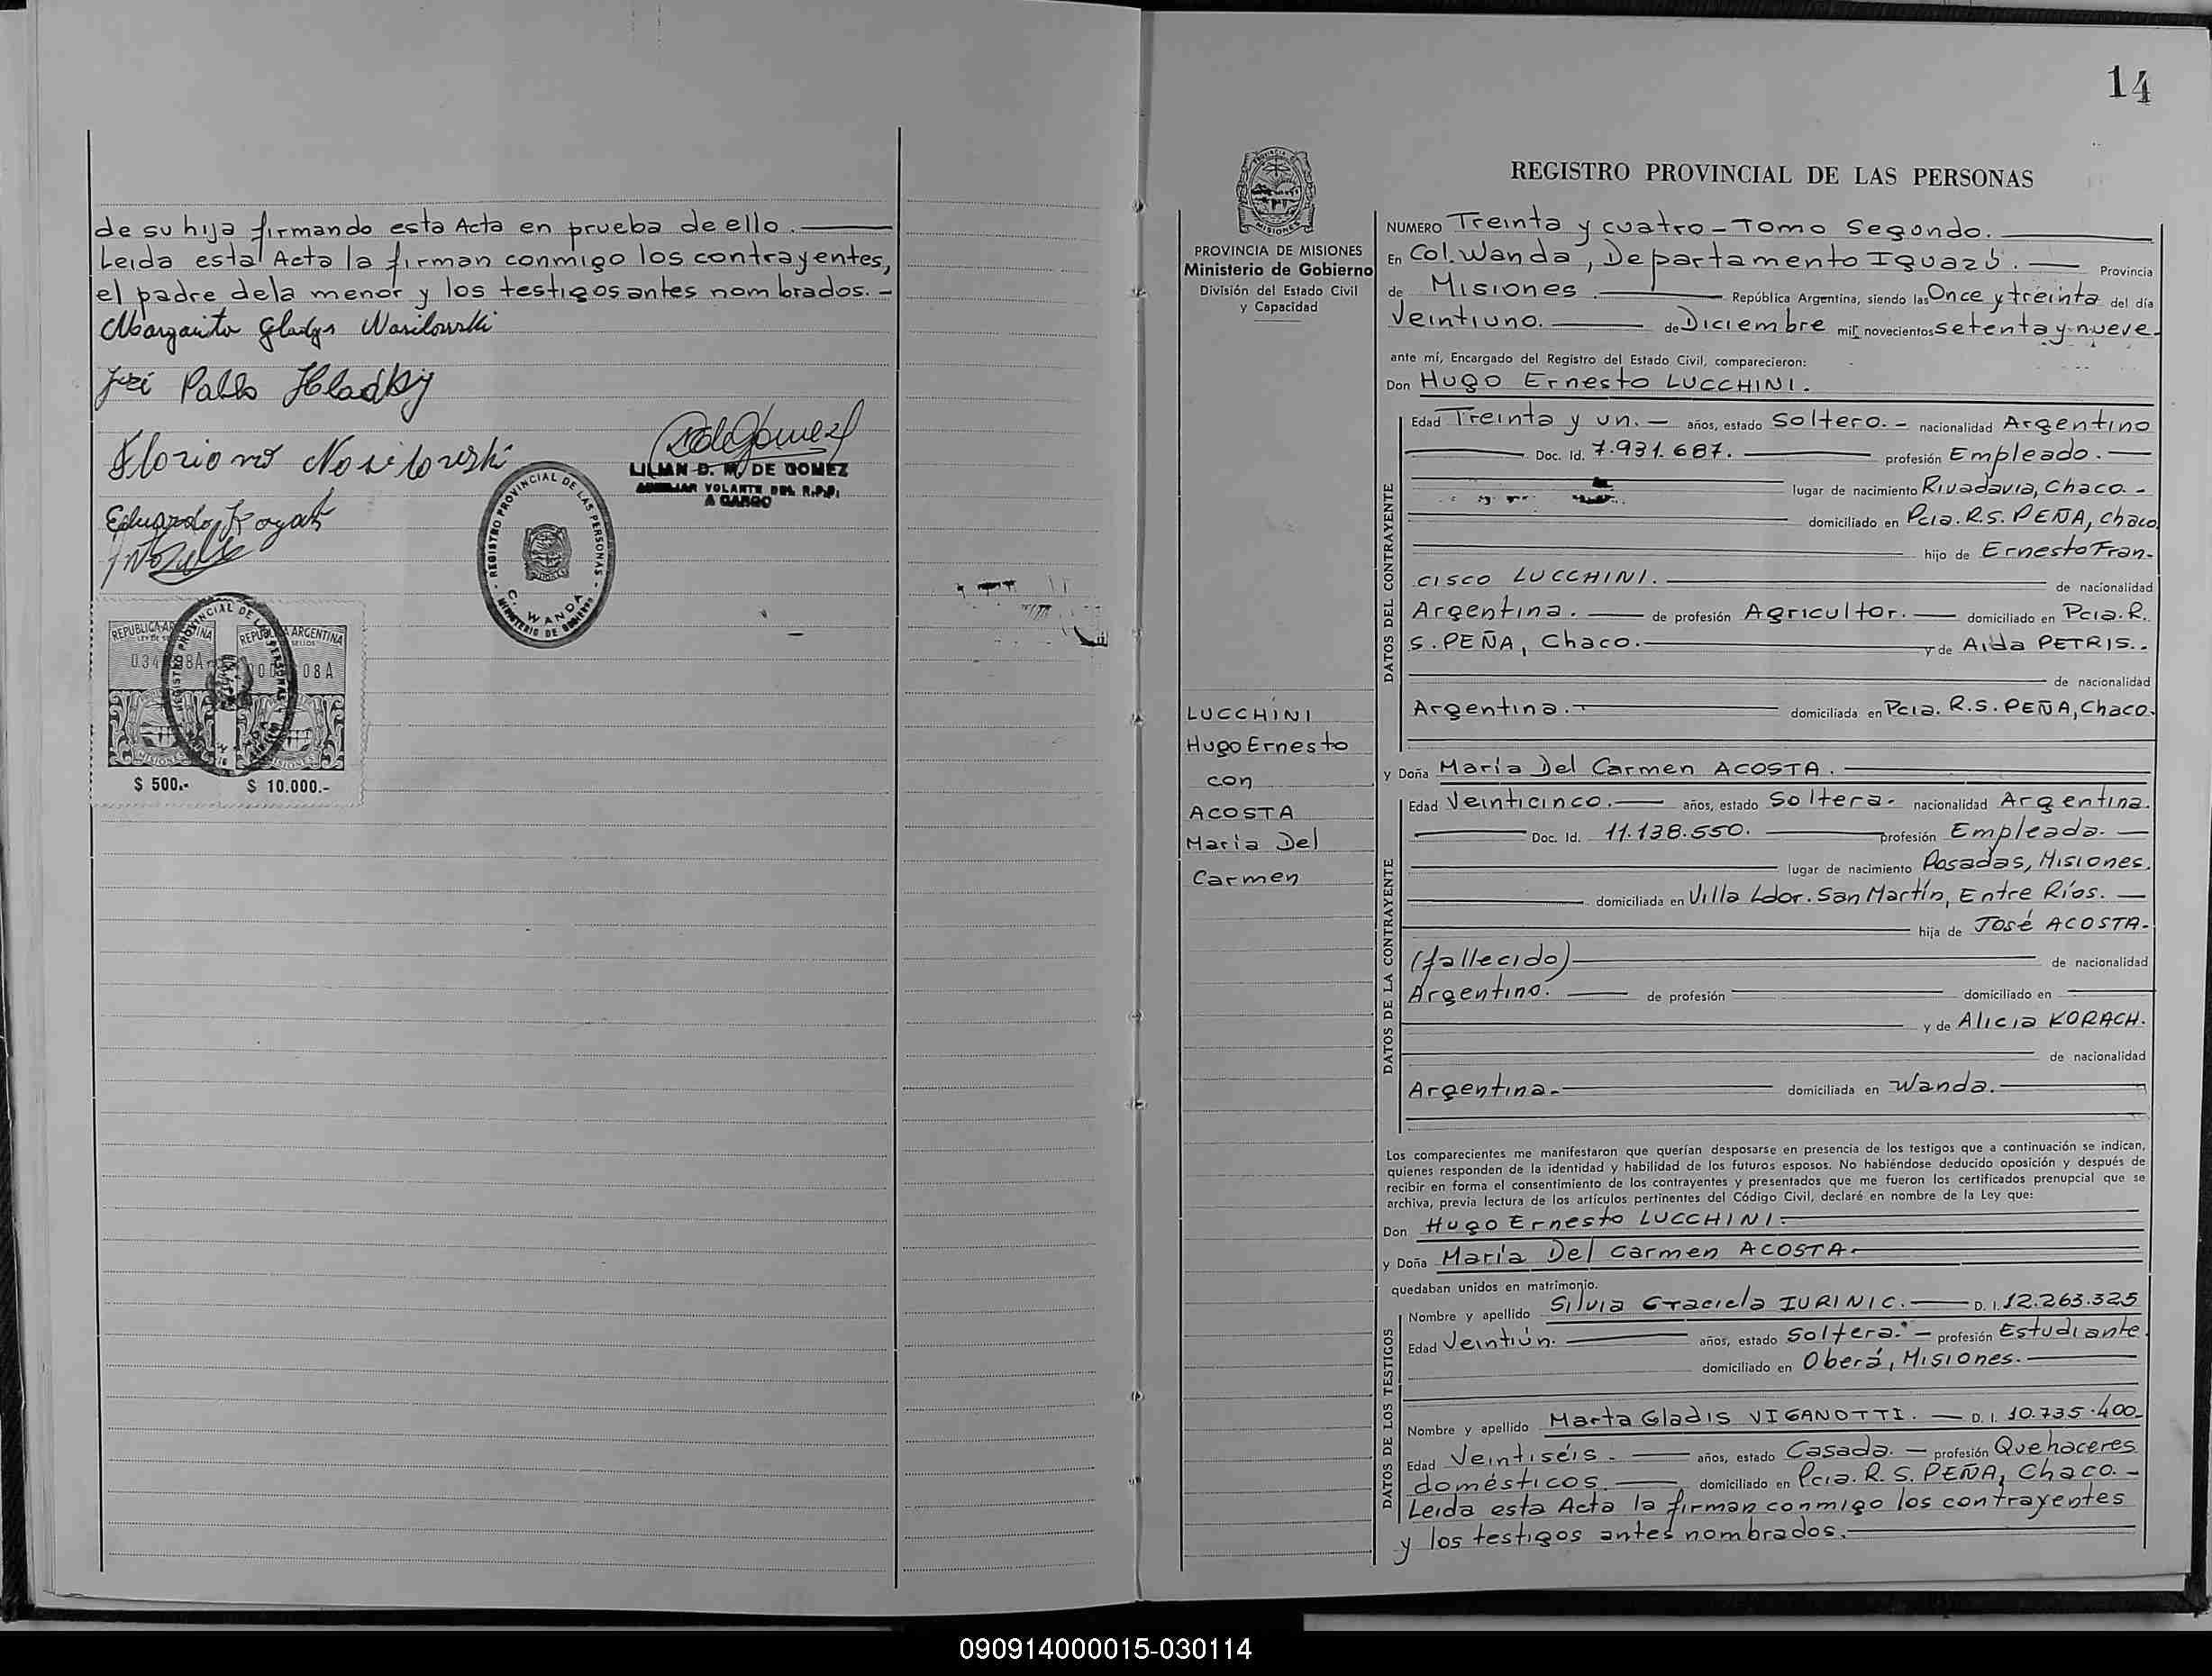 de su hija firmando esta Acta en prueba de ello.
Leida esta Acta la firman conmigo los contrayentes,
el padre dela menor y los testigos antes nombrados. -
Margarita Gladys Wasilowski
José Pablo Hladky
LILIAN D. M. DE GOMEZ
AUXILIAR VOLANTE DEL R.P.P.
A CARGO
REGISTRO PROVINCIAL DE LAS PERSONAS
C. WANDA
MINISTERIO DE GOBIERNO
Eduardo
REPUBLICA ARGENTINA
REPUBLICA ARGENTINA
08A
$ 500.-
$ 10.000.-
14
REGISTRO PROVINCIAL DE LAS PERSONAS
PROVINCIA DE MISIONES
Ministerio de Gobierno
División del Estado Civil
y Capacidad
LUCCHINI
Hugo Ernesto
con
ACOSTA
Maria Del
Carmen
NUMERO Treinta y cuatro - Tomo Segundo.
En Col. Wanda, Departamento Iguazú. Provincia
de Misiones. República Argentina, siendo las Once y treinta del día
Veintiuno. de Diciembre mil novecientos setenta y nueve-
ante mí, Encargado del Registro del Estado Civil, comparecieron:
Don Hugo Ernesto LUCCHINI.
DATOS DEL CONTRAYENTE
Edad Treinta y un. - años, estado Soltero. - nacionalidad Argentino
Doc. Id. 7.931.687. profesión Empleado. -
lugar de nacimiento Rivadavia, Chaco. -
domiciliado en Pcia. R.S. PEÑA, Chaco
hijo de Ernesto Fran-
cisco LUCCHINI. de nacionalidad
Argentina. de profesión Agricultor. domiciliado en Pcia. R.
S. PEÑA, Chaco. y de Aida PETRIS. -
de nacionalidad
Argentina. - domiciliada en Pcia. R.S. PEÑA, Chaco.
y Doña María Del Carmen ACOSTA.
DATOS DE LA CONTRAYENTE
Edad Veinticinco. años, estado Soltera- nacionalidad Argentina.
Doc. Id. 11.138.550. profesión Empleada. -
lugar de nacimiento Posadas, Misiones.
domiciliada en Villa Ldor. San Martín, Entre Ríos. -
hija de José ACOSTA-
(fallecido) de nacionalidad
Argentino. de profesión domiciliado en
y de Alicia KORACH.
de nacionalidad
Argentina- domiciliada en Wanda.
Los comparecientes me manifestaron que querían desposarse en presencia de los testigos que a continuación se indican,
quienes responden de la identidad y habilidad de los futuros esposos. No habiéndose deducido oposición y después de
recibir en forma el consentimiento de los contrayentes y presentados que me fueron los certificados prenupcial que se
archiva, previa lectura de los artículos pertinentes del Código Civil, declaré en nombre de la Ley que:
Don Hugo Ernesto LUCCHINI.
y Doña María Del Carmen ACOSTA.
quedaban unidos en matrimonio.
DATOS DE LOS TESTIGOS
Nombre y apellido Silvia Graciela IURINIC. D. I. 12.263.325
Edad Veintiún. años, estado Soltera. - profesión Estudiante
domiciliado en Oberá, Misiones.
Nombre y apellido Marta Gladis VIGANOTTI. - D. I. 10.735.400-
Edad Veintiséis. años, estado Casada. - profesión Quehaceres
domésticos. domiciliado en Pcia. R. S. PEÑA, Chaco. -
Leida esta Acta la firman conmigo los contrayentes
y los testigos antes nombrados.
090914000015-030114